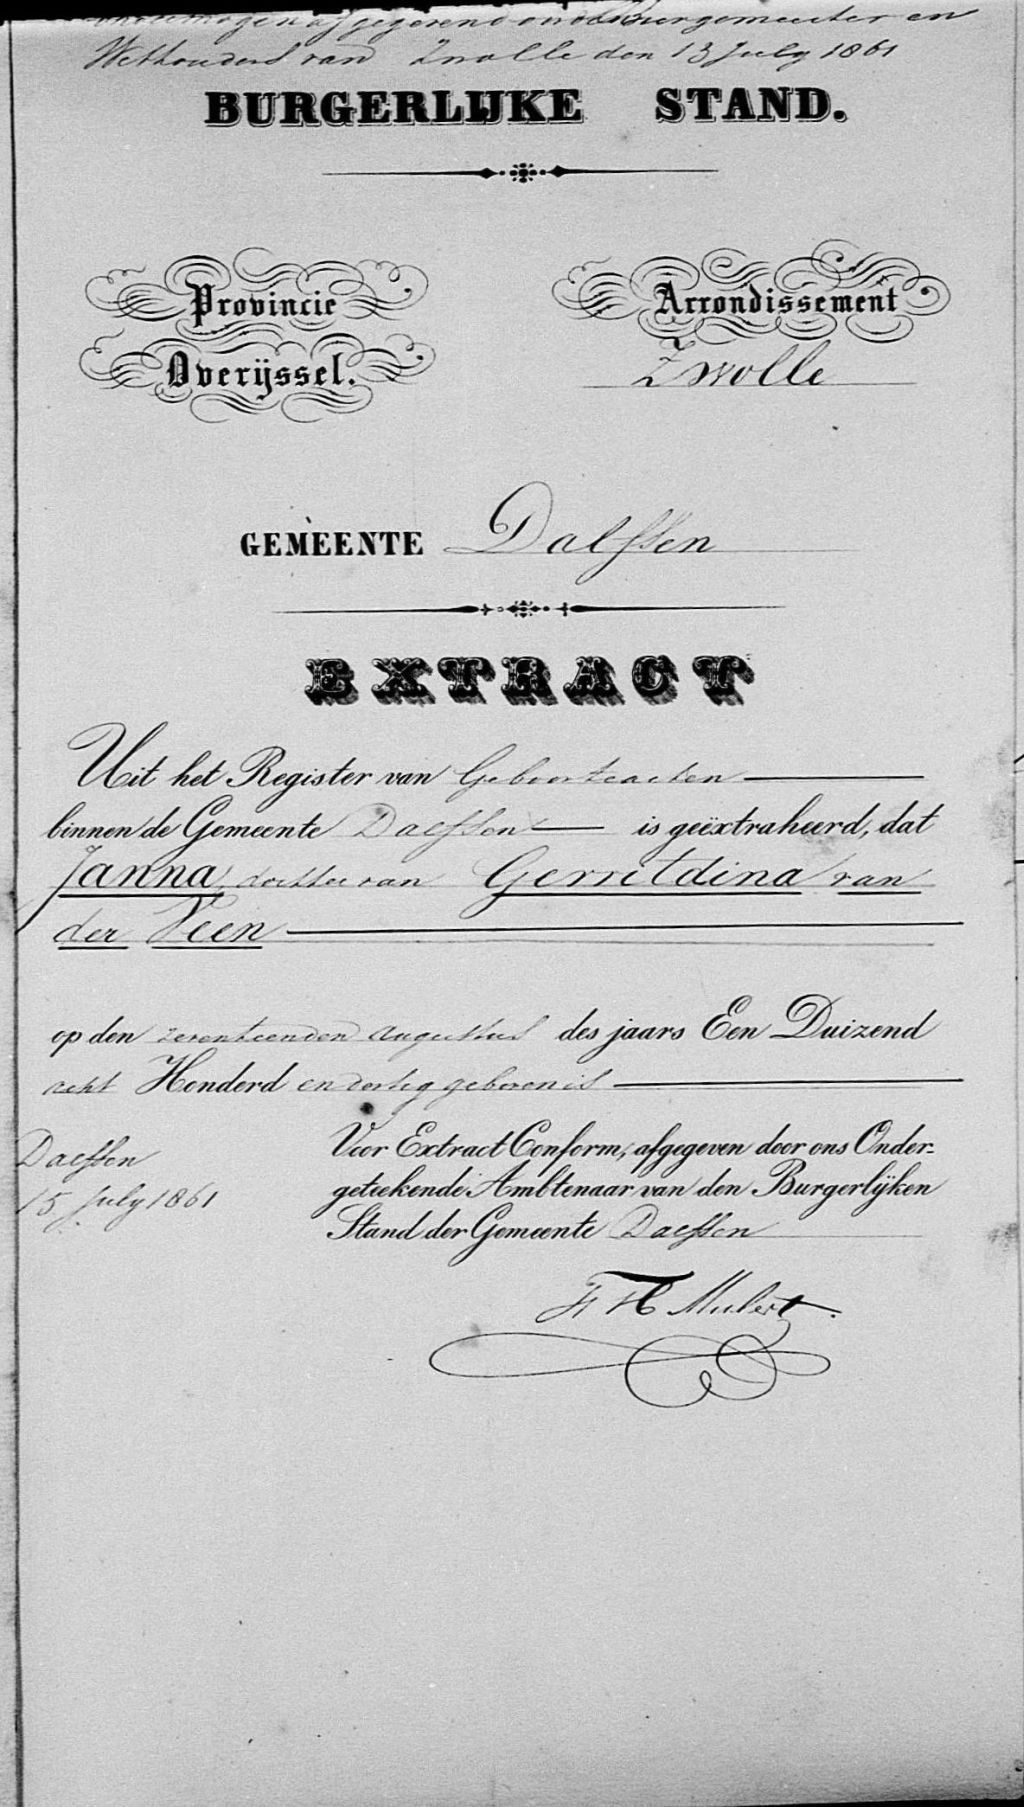 onvermogen afgegeven door Burgemeester en
Wethouders van Zwolle den 13 July 1861
BURGERLIJKE STAND.
Provincie
Overijssel.
Arrondissement
Zwolle
GEMEENTE Dalfssen
EXTRACT
Uit het Register van Geboorteacten
binnen de Gemeente Dalfssen is geëxtraheerd, dat
Janna, dochter van Gerritdina van
der Veen
op den zeventienden Augustus des jaars Een Duizend
acht Honderd en dertig geboren is
Dalfssen
15 July 1861
Voor Extract Conform, afgegeven door ons Onder-
geteekende Ambtenaar van den Burgerlijken
Stand der Gemeente Dalfssen
Mulert